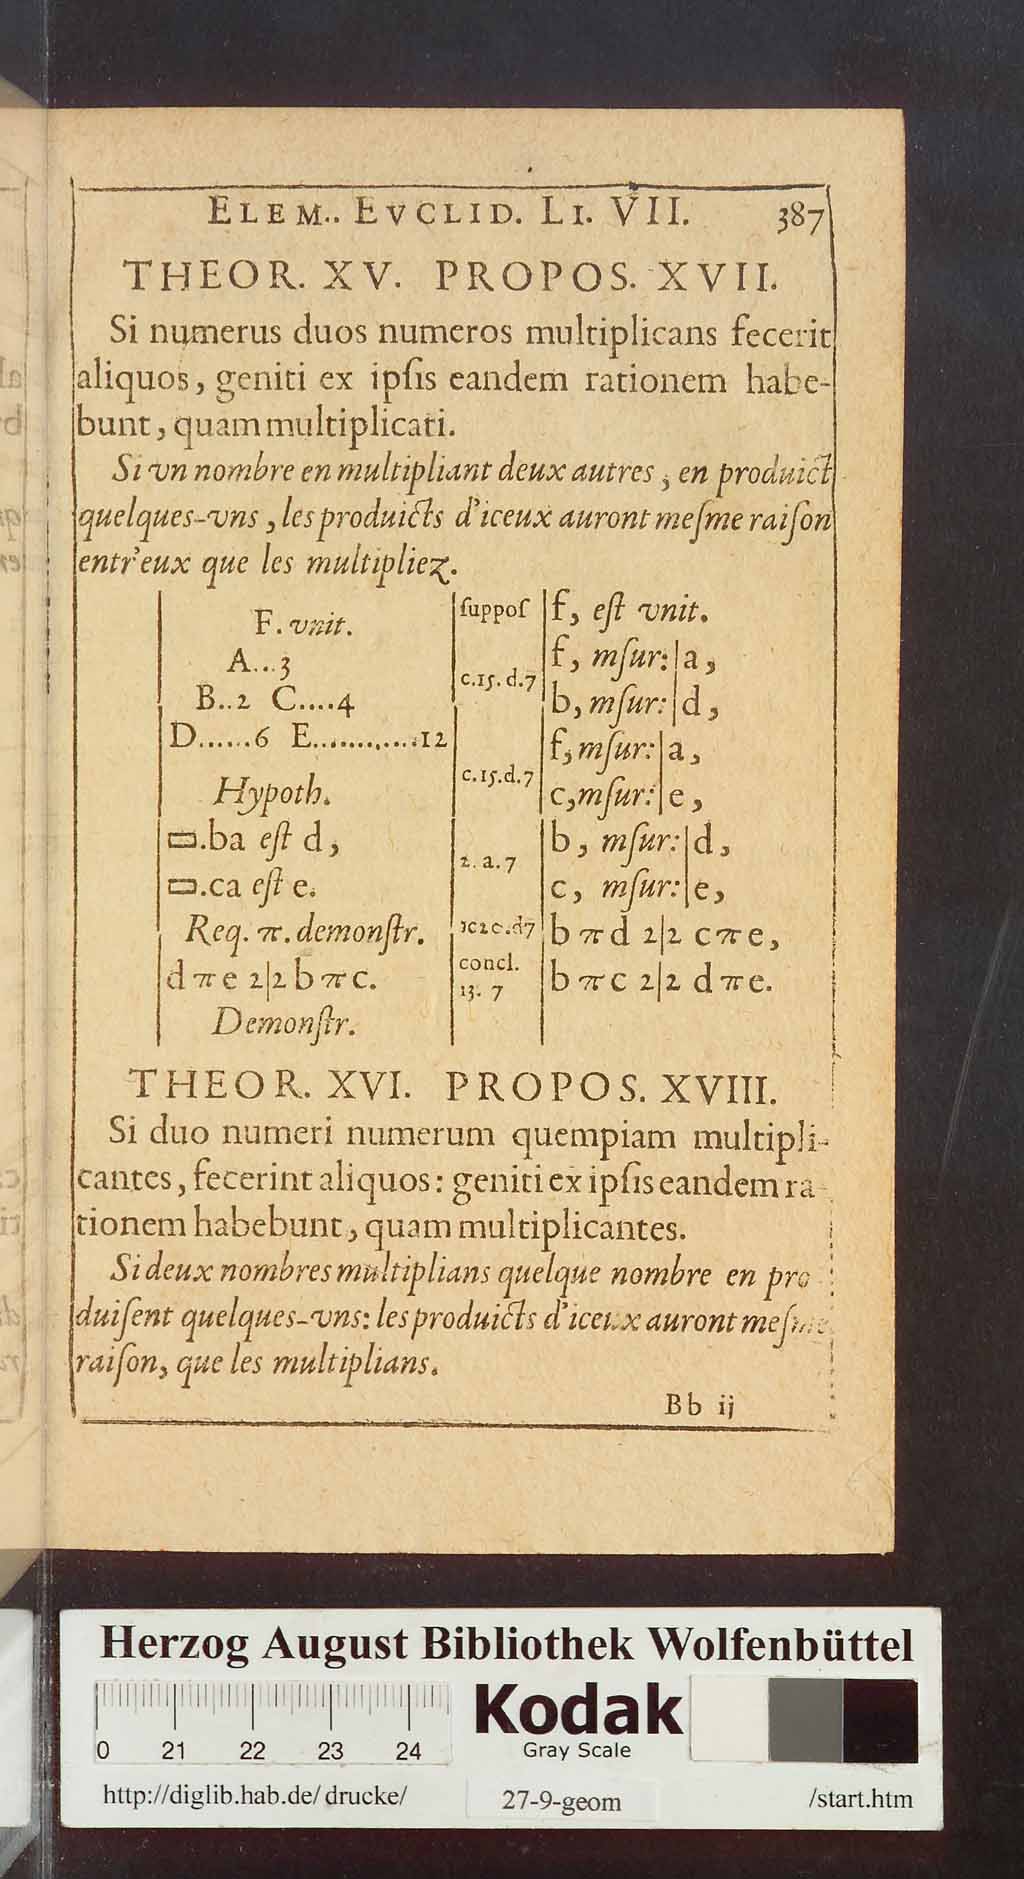 ELEM.. EVCLID. LI. VII. 387
THEOR. XV. PROPOS. XVII.
Si numerus duos numeros multiplicans fecerit
aliquos, geniti ex ipſis eandem rationem habe-
bunt, quam multiplicati.
Si vn nombre en multipliant deux autres, en produict
quelques-vns, les produicts d'iceux auront meſme raiſon
entr'eux que les multipliez.
F. vnit.
A...3
B..2 C....4
D......6 E............12
Hypoth.
▭.ba eſt d,
▭.ca eſt e.
Req. π. demonſtr.
d π e 2|2 b π c.
Demonſtr.
ſuppoſ f, eſt vnit.
f, mſur: |a,
c.15.d.7
b, mſur: |d,
f, mſur: |a,
c.15.d.7
c, mſur: |e,
b, mſur: |d,
2.a.7
c, mſur: |e,
b π d 2|2 c π e,
concl.
13. 7
b π c 2|2 d π e.
THEOR. XVI. PROPOS. XVIII.
Si duo numeri numerum quempiam multipli-
cantes, fecerint aliquos: geniti ex ipſis eandem ra-
tionem habebunt, quam multiplicantes.
Si deux nombres multiplians quelque nombre en pro
duiſent quelques-vns: les produicts d'iceux auront meſme
raiſon, que les multiplians.
Bb ij
Herzog August Bibliothek Wolfenbüttel
0 21 22 23 24
Kodak
Gray Scale
http://diglib.hab.de/drucke/ 27-9-geom /start.htm